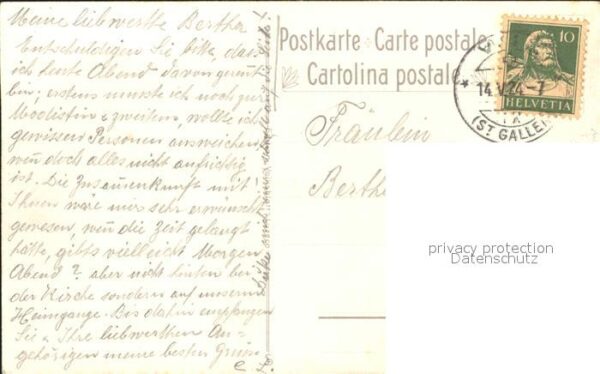 Meine liebwerte Bertha!
Entschuldigen Sie bitte, dass
ich heute Abend davon gerannt
bin; erstens musste ich noch zur
Modistin & zweitens, wollte ich
gewissen Personen ausweichen,
wen̄ doch alles nicht aufrichtig
ist. Die Zusam̄enkunft mit
Ihnen wäre mir sehr erwünscht
gewesen, wen̄ die Zeit gelangt
hätte, gibts vielleicht Morgen
Abend? aber nicht hinten bei
der Kirche sondern auf unserm
Heimgange. Bis dahin empfangen
Sie & Ihre liebwerthen An-
gehörigen meine besten Grüsse
Bitte
Postkarte Carte postale
Cartolina postale
10
HELVETIA
14.V.24.-7
(ST. GALLEN)
Fräulein
Bertha
privacy protection
Datenschutz